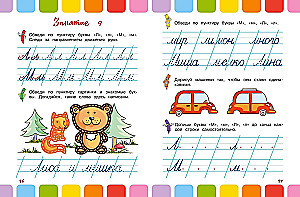 Занятие 9
Обведи по пунктиру буквы «М», «м», «Л», «л».
Следи за направлением движения руки.
Обведи по пунктиру картинки и знакомые бук-
вы. Догадайся, какие слова здесь написаны.
Лиса и мишка
46
Обведи по пунктиру буквы «М», «м», «Л», «л».
мир лимон много
Миша
Дорисуй машинки так, чтобы они стали одина-
ковыми.
Допиши буквы «М», «м», «Л», «л» до конца каж-
дой строки самостоятельно.
М м
Л л
47